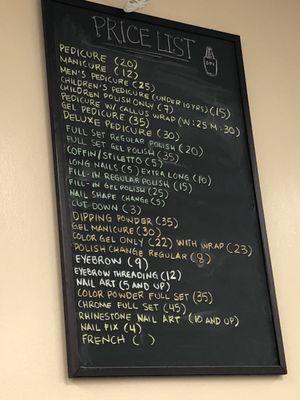 PRICE LIST
OPI
PEDICURE (20)
MANICURE (12)
MEN'S PEDICURE (25)
CHILDREN'S PEDICURE (UNDER 10 YRS) (15)
CHILDREN POLISH ONLY (7)
PEDICURE W/ CALLUS WRAP (W:25 M:30)
GEL PEDICURE (35)
DELUXE PEDICURE (30)
FULL SET REGULAR POLISH (20)
FULL SET GEL POLISH (35)
COFFIN/STILETTO (5)
LONG NAILS (5) EXTRA LONG (10)
FILL-IN REGULAR POLISH (15)
FILL-IN GEL POLISH (25)
NAIL SHAPE CHANGE (5)
CUT DOWN (3)
DIPPING POWDER (35)
GEL MANICURE (30)
COLOR GEL ONLY (22) WITH WRAP (23)
POLISH CHANGE REGULAR (8)
EYEBROW (9)
EYEBROW THREADING (12)
NAIL ART (5 AND UP)
COLOR POWDER FULL SET (35)
CHROME FULL SET (45)
RHINESTONE NAIL ART (10 AND UP)
NAIL FIX (4)
FRENCH ( )